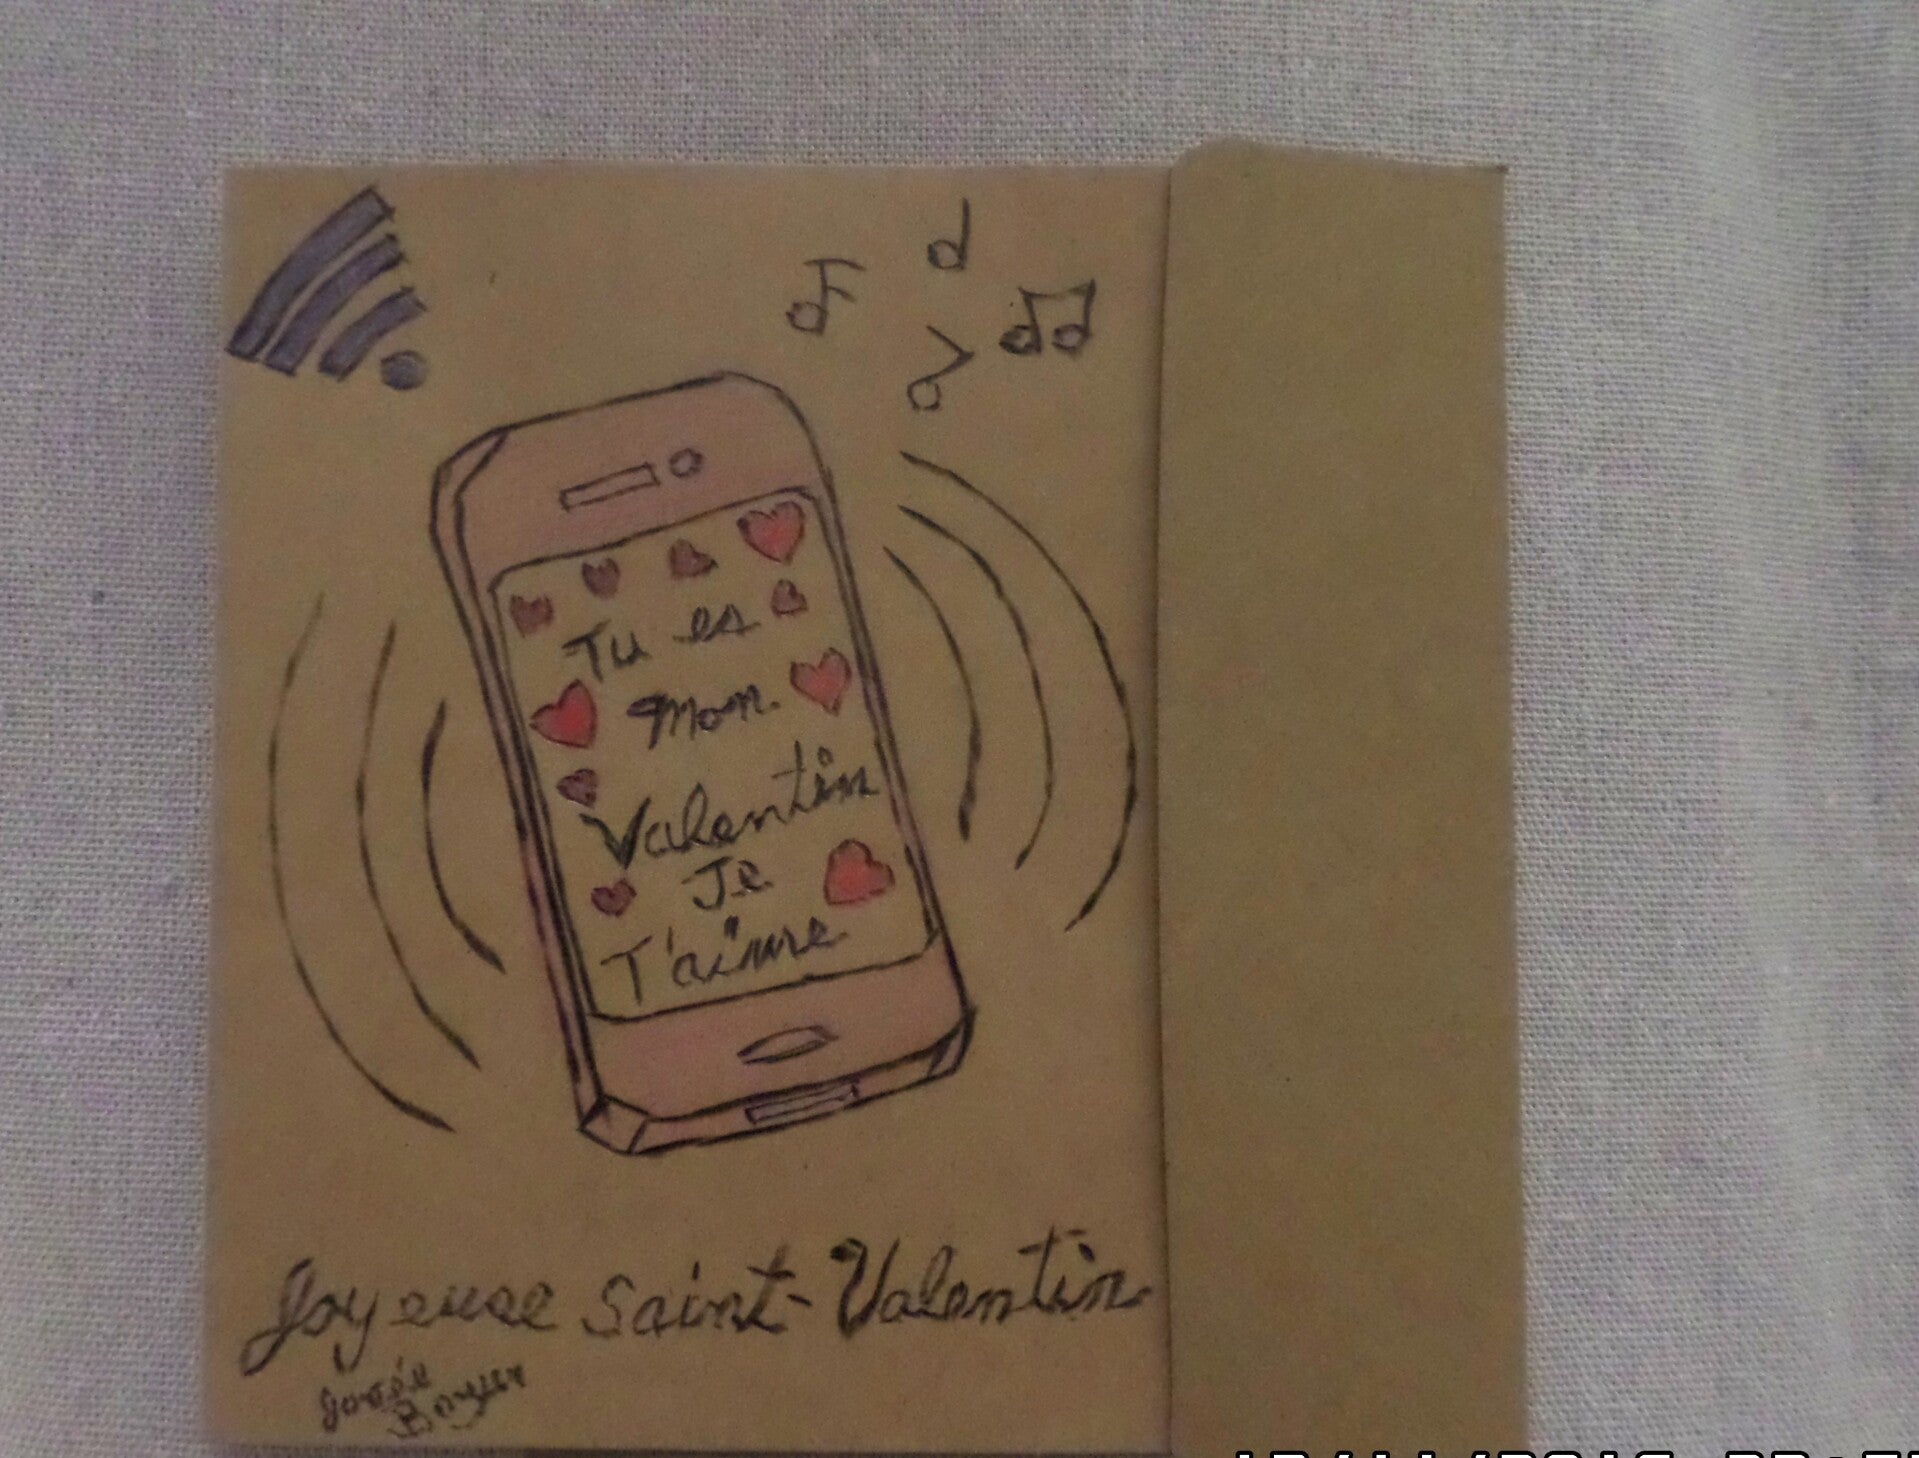 Tu es
Mon
Valentin
Je
T'aime
Joyeuse Saint-Valentin